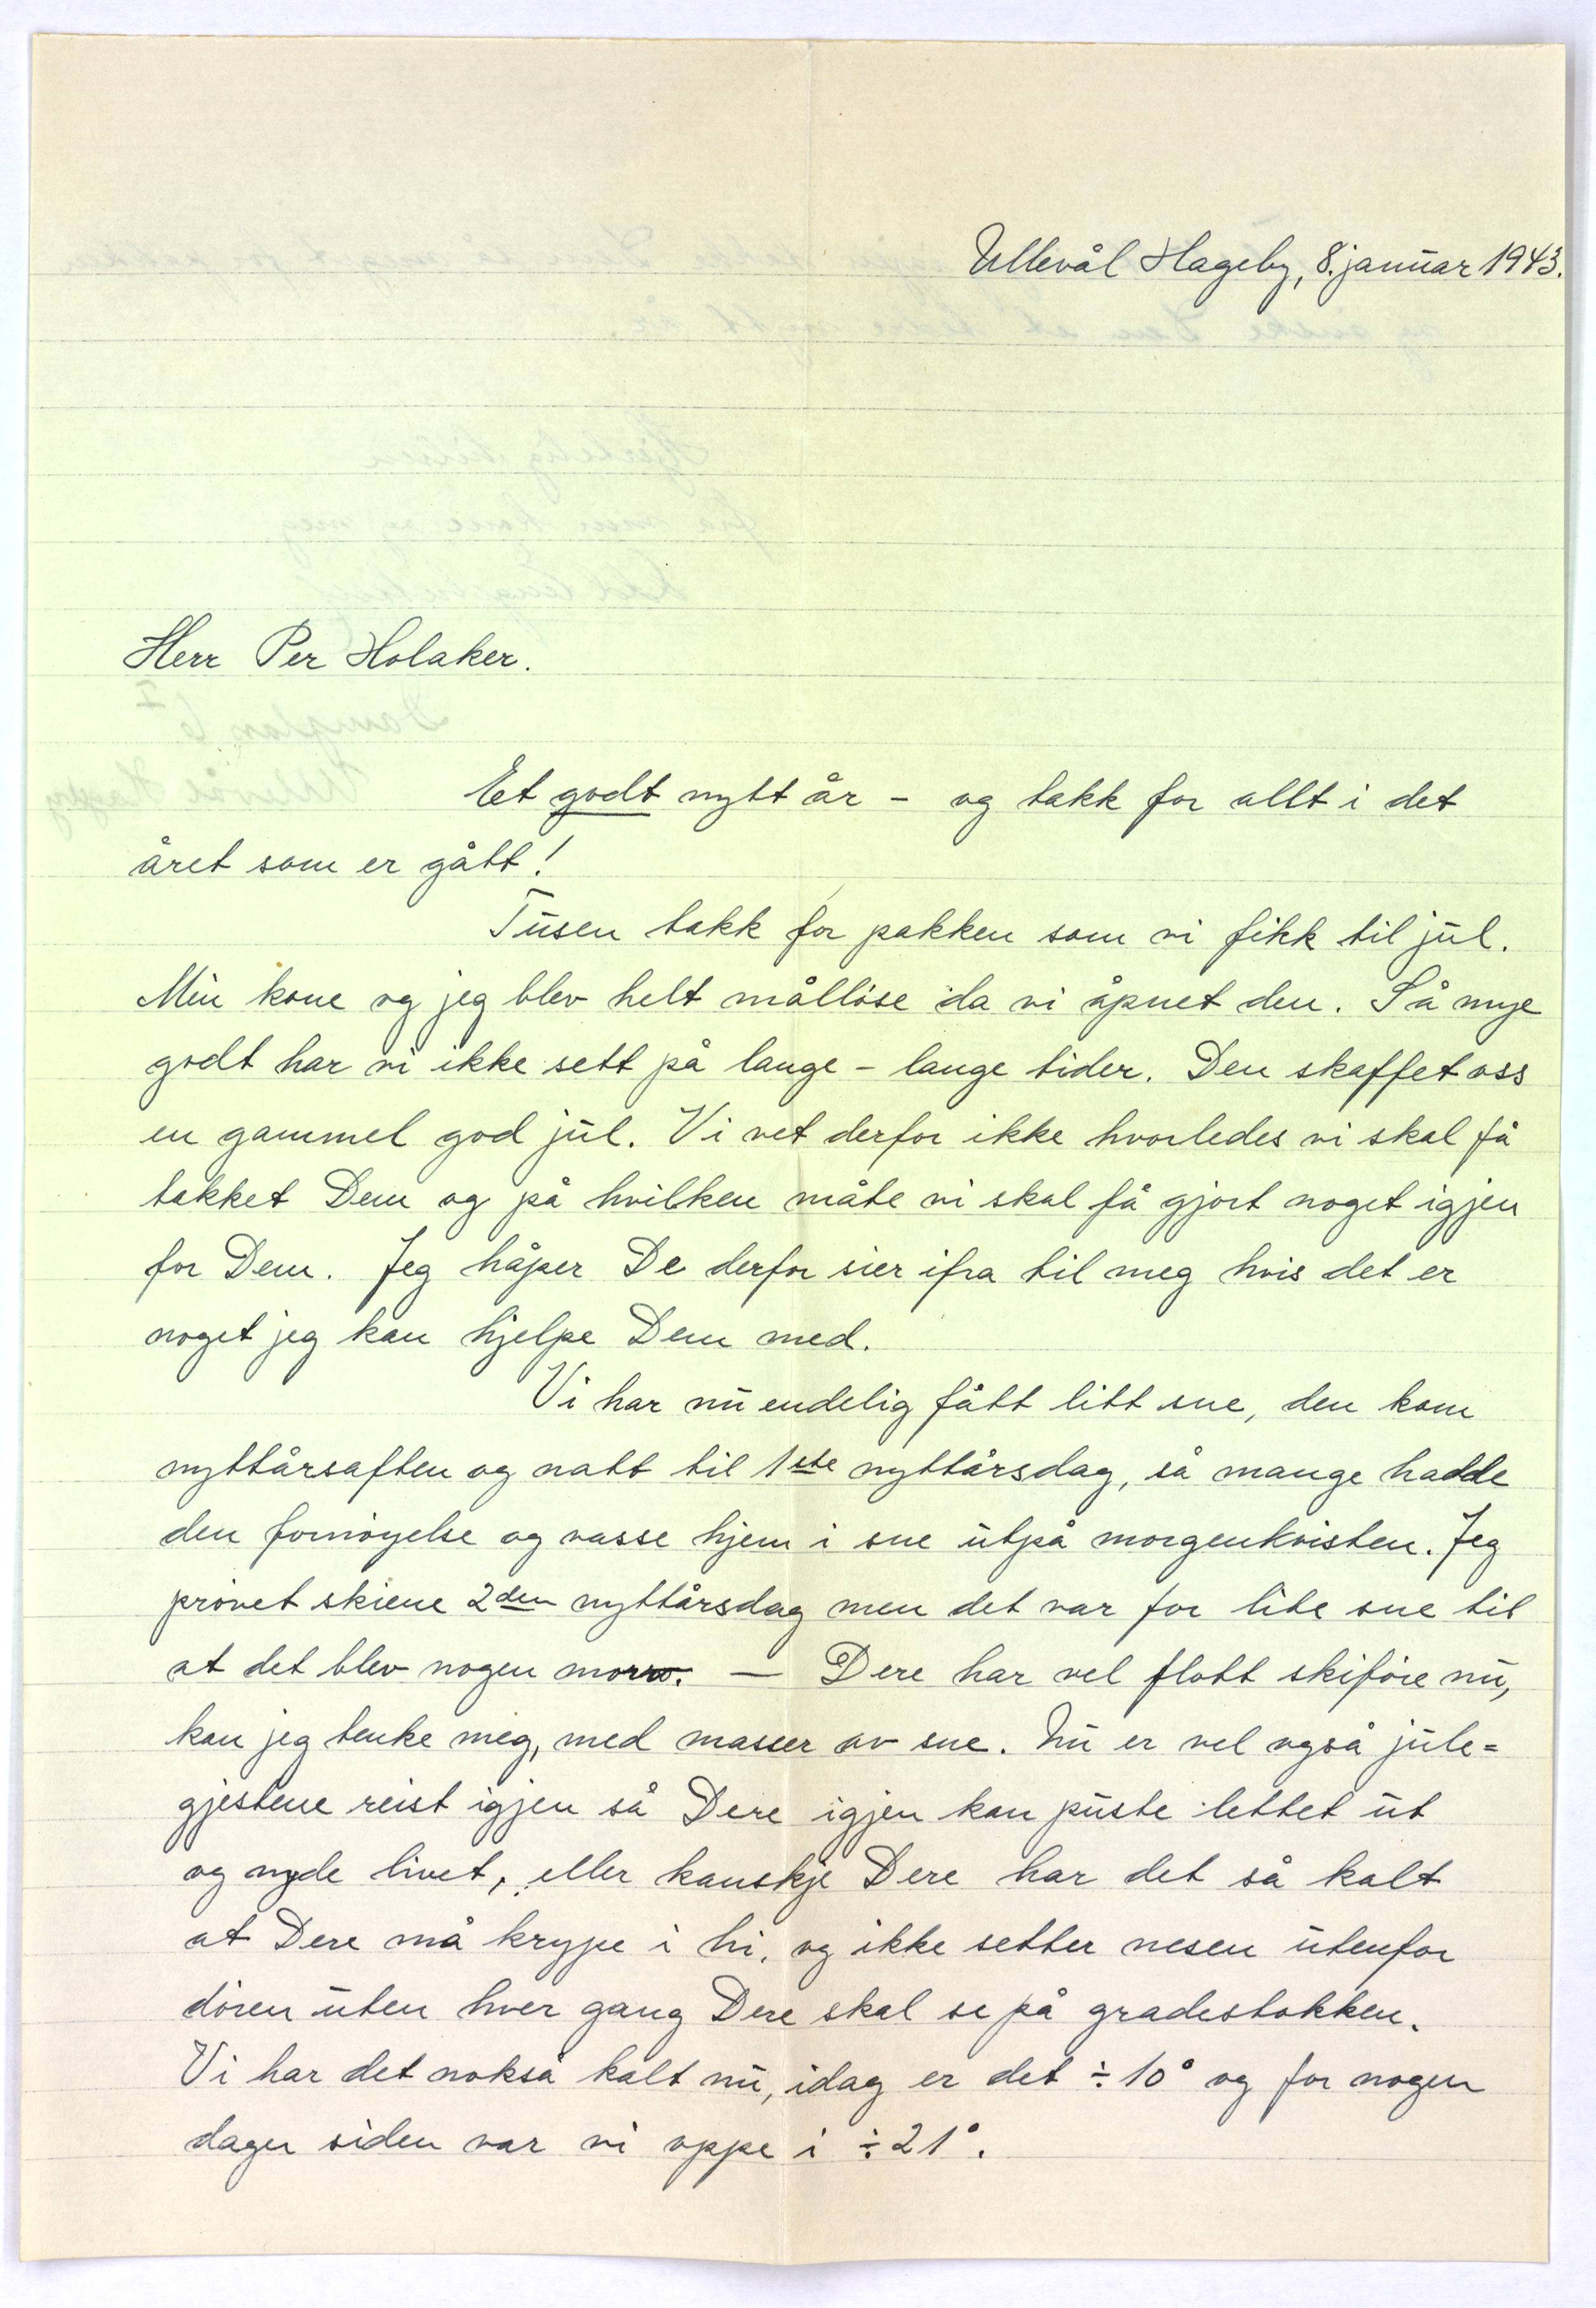 Ullevål Hageby, 8. januar 1943.
Herr Per Holaker.
Et godt nytt år - og takk for allt i det
året som er gått!
Tusen takk for pakken som vi fikk til jul.
Min kone og jeg blev helt målløse da vi åpnet den. Så mye
godt har vi ikke sett på lange - lange tider. Den skaffet oss
en gammel god jul. Vi vet derfor ikke hvorledes vi skal få
takket Dem og på hvilken måte vi skal få gjort noget igjen
for Dem. Jeg håper De derfor sier ifra til meg hvis det er
noget jeg kan hjelpe Dem med.
Vi har nu endelig fått litt sne, den kom
nyttårsaften og natt til 1ste nyttårsdag, så mange hadde
den fornøyelse og vasse hjem i sne utpå morgenkvisten. Jeg
prøvet skiene 2den nyttårsdag men det var for lite sne til
at det blev nogen morro. — Dere har vel flott skiføre nu,
kan jeg tenke meg, med masser av sne. Nu er vel også jule=
gjestene reist igjen så Dere igjen kan puste lettet ut
og nyde livet, eller kanskje Dere har det så kalt
at Dere må krype i hi, og ikke setter nesen utenfor
døren uten hver gang Dere skal se på gradestokken.
Vi har det nokså kalt nu, idag er det ÷ 10° og for nogen
dager siden var vi oppe i ÷ 21°.